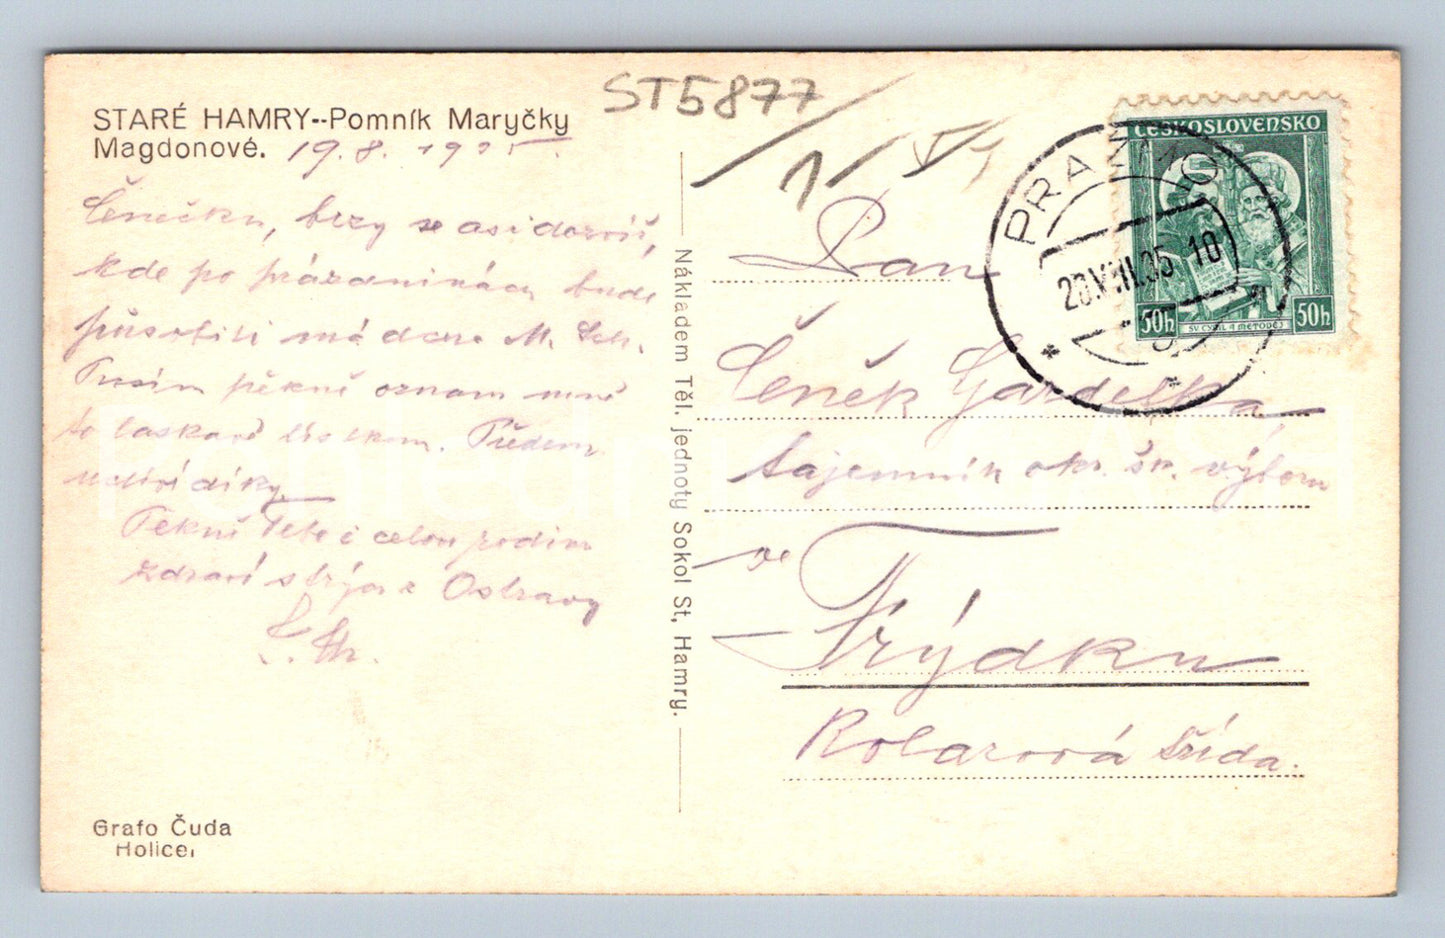 STARÉ HAMRY--Pomník Maryčky
Magdonové. 19.8. 1935.
ST5877
1
Čenečku, brzy se asi dozvíš,
kde po prázdninách bude
působiti má dcera M. Sch.
Prosím pěkně oznam mně
to laskavě lístkem. Předem
uctivé díky.
Pěkně Tebe i celou rodinu
zdraví strýc z Ostravy
Grafo Čuda
Holice,
Nákladem Těl. jednoty Sokol St, Hamry.
ČESKOSLOVENSKO
50h SV. CYRIL A METODĚJ 50h
PRAŽMO
20.VIII.35 10
Pan
Čeněk Gardelka
tajemník okr. šk. výboru
ve
Frýdku
Kolárova třída.